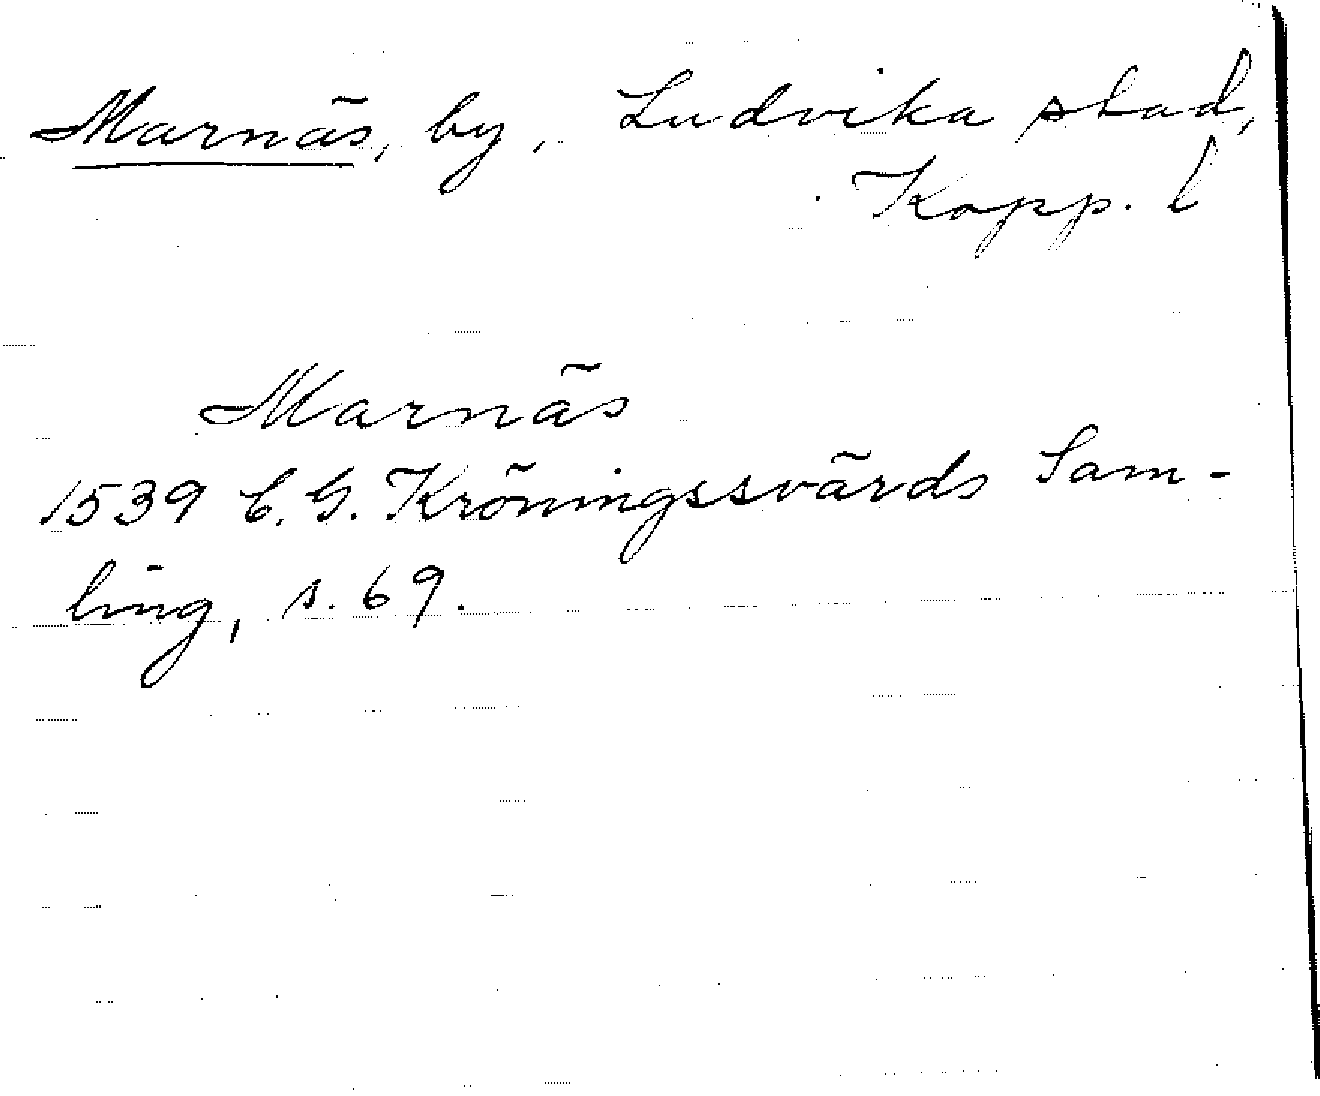 Marnäs, by, Ludvika stad,
Kopp. l
Marnäs
1539 C. G. Kröningssvärds Sam-
ling, s. 69.